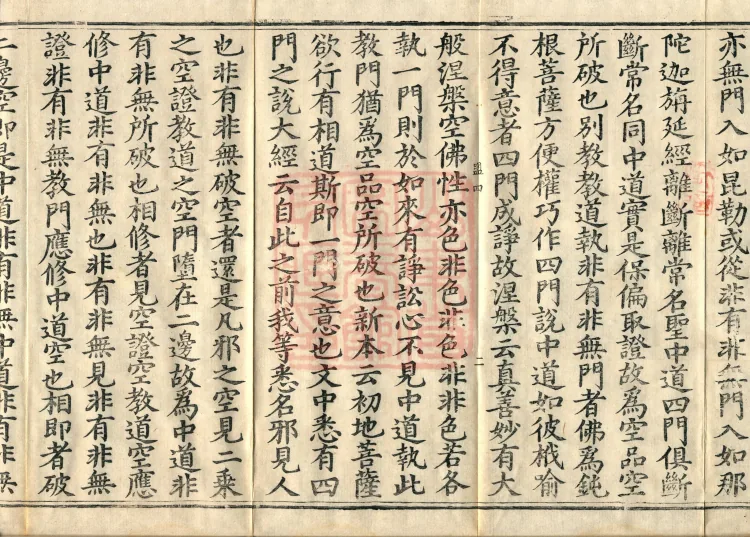 亦無門入如昆勒或從非有非無門入如那
陀迦旃延經離斷離常名聖中道四門俱斷
斷常名同中道實是保偏取證故為空品空
所破也別教教道執非有非無門者佛為鈍
根菩薩方便權巧作四門說中道如彼栰喻
不得意者四門成諍故涅槃云真善妙有大
般涅槃空佛性亦色非色非色非非色若各
執一門則於如來有諍訟心不見中道執此
教門猶為空品空所破也新本云初地菩薩
欲行有相道斯即一門之意也文中悉有四
門之說大經云自此之前我等悉名邪見人
也非有非無破空者還是凡邪之空見二乘
之空證教道之空門墮在二邊故為中道非
有非無所破也相修者見空證空教道空應
修中道非有非無也非有非無見非有非無
證非有非無教門應修中道空也相即者破
二邊空即是中道非有非無中道非有非無